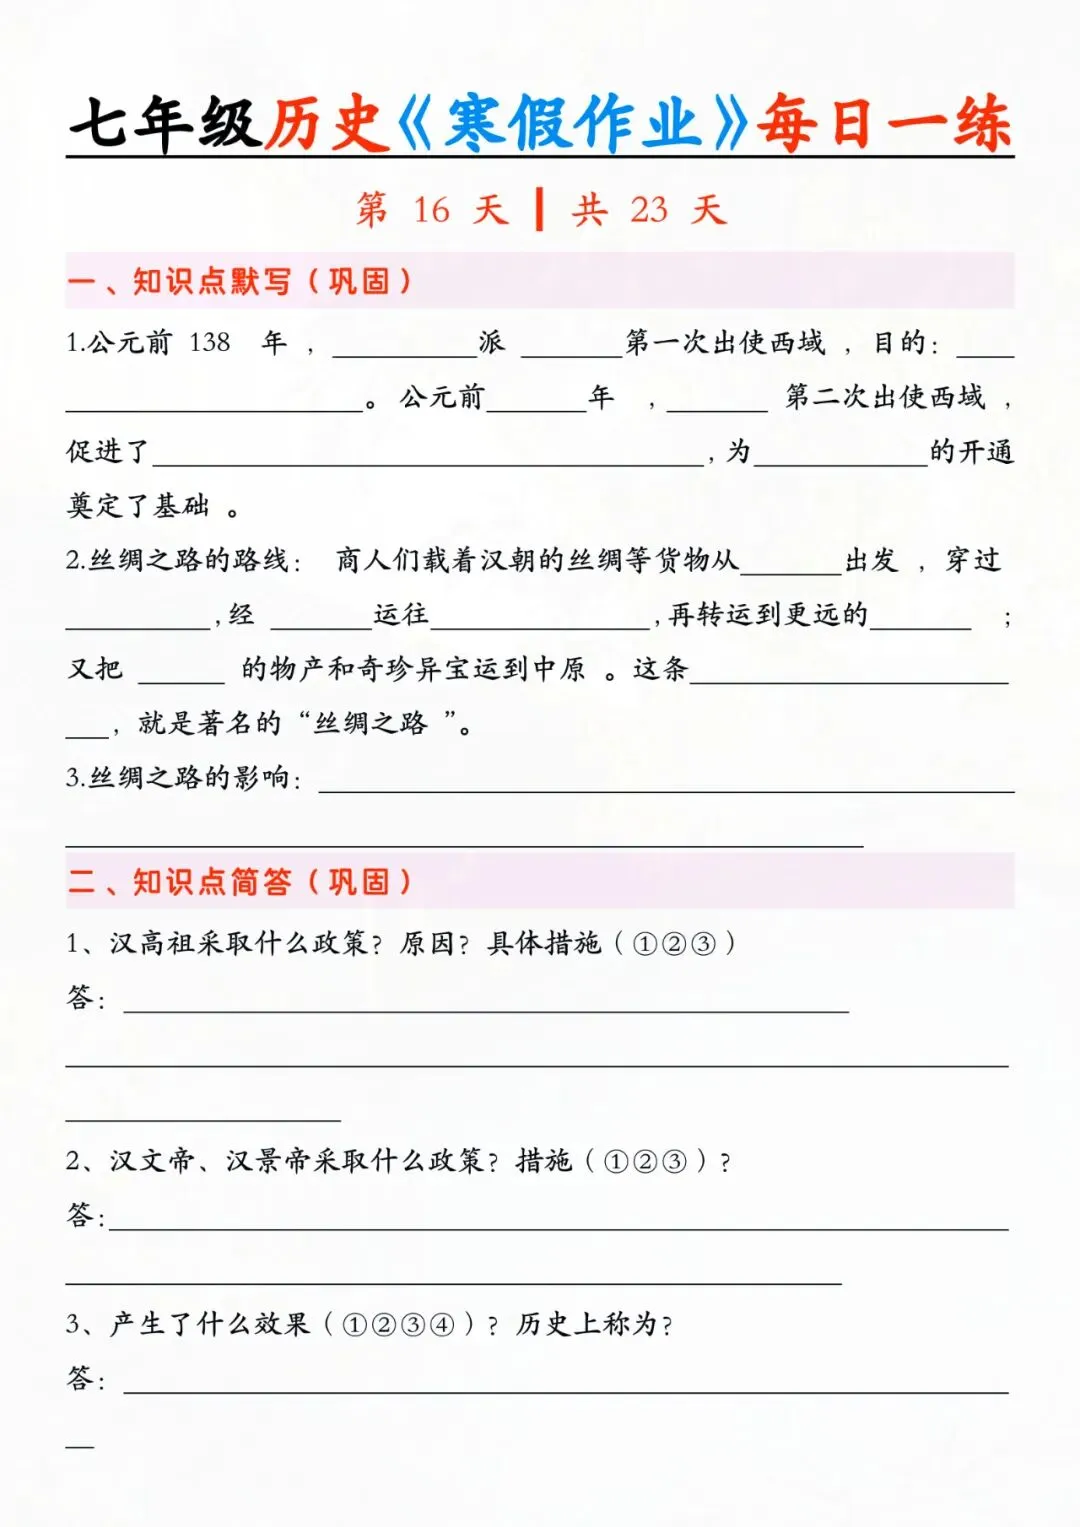 七年级历史《寒假作业》每日一练
第 16 天 | 共 23 天
一、知识点默写（巩固）
1.公元前 138 年，__________派 _______第一次出使西域 ，目的：____
____________________。公元前_______年 ，_______ 第二次出使西域 ，
促进了______________________________________，为____________的开通
奠定了基础 。
2.丝绸之路的路线： 商人们载着汉朝的丝绸等货物从_______出发 ，穿过
__________,经 _______运往_______________,再转运到更远的_______ ；
又把 ______ 的物产和奇珍异宝运到中原 。这条______________________
___，就是著名的“丝绸之路 ”。
3.丝绸之路的影响：________________________________________________
_______________________________________________________
二、知识点简答（巩固）
1、汉高祖采取什么政策？原因？具体措施（①②③）
答：__________________________________________________
_________________________________________________________________
___________________
2、汉文帝、汉景帝采取什么政策？措施（①②③）？
答：______________________________________________________________
______________________________________________________
3、产生了什么效果（①②③④）？历史上称为？
答：_____________________________________________________________
__